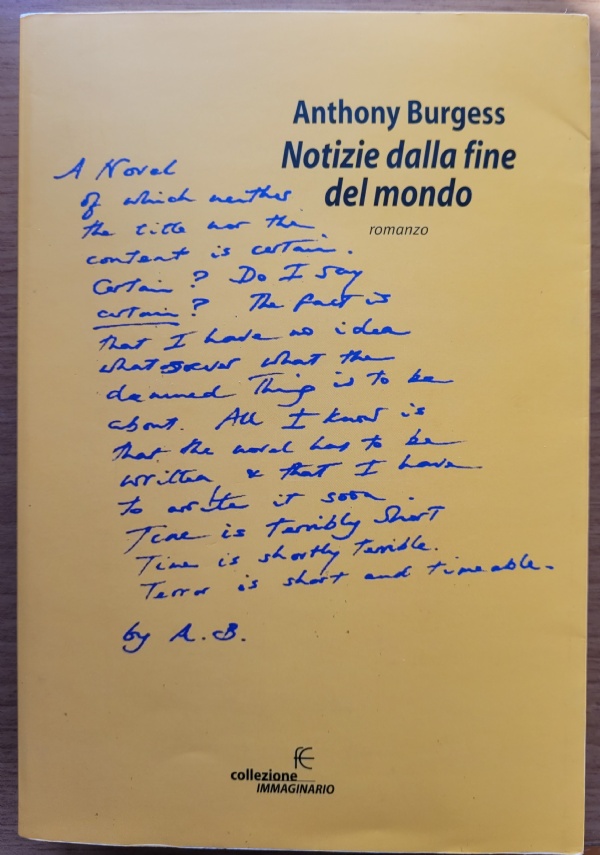 Anthony Burgess
Notizie dalla fine
del mondo
romanzo
A Novel
of which neither
the title nor the
content is certain.
Certain? Do I say
certain? The fact is
that I have no idea
whatsoever what the
damned Thing is to be
about. All I know is
that the novel has to be
written & that I have
to write it soon.
Time is terribly short
Time is shortly terrible.
Terror is short and timeable.
by A. B.
fE
collezione
IMMAGINARIO